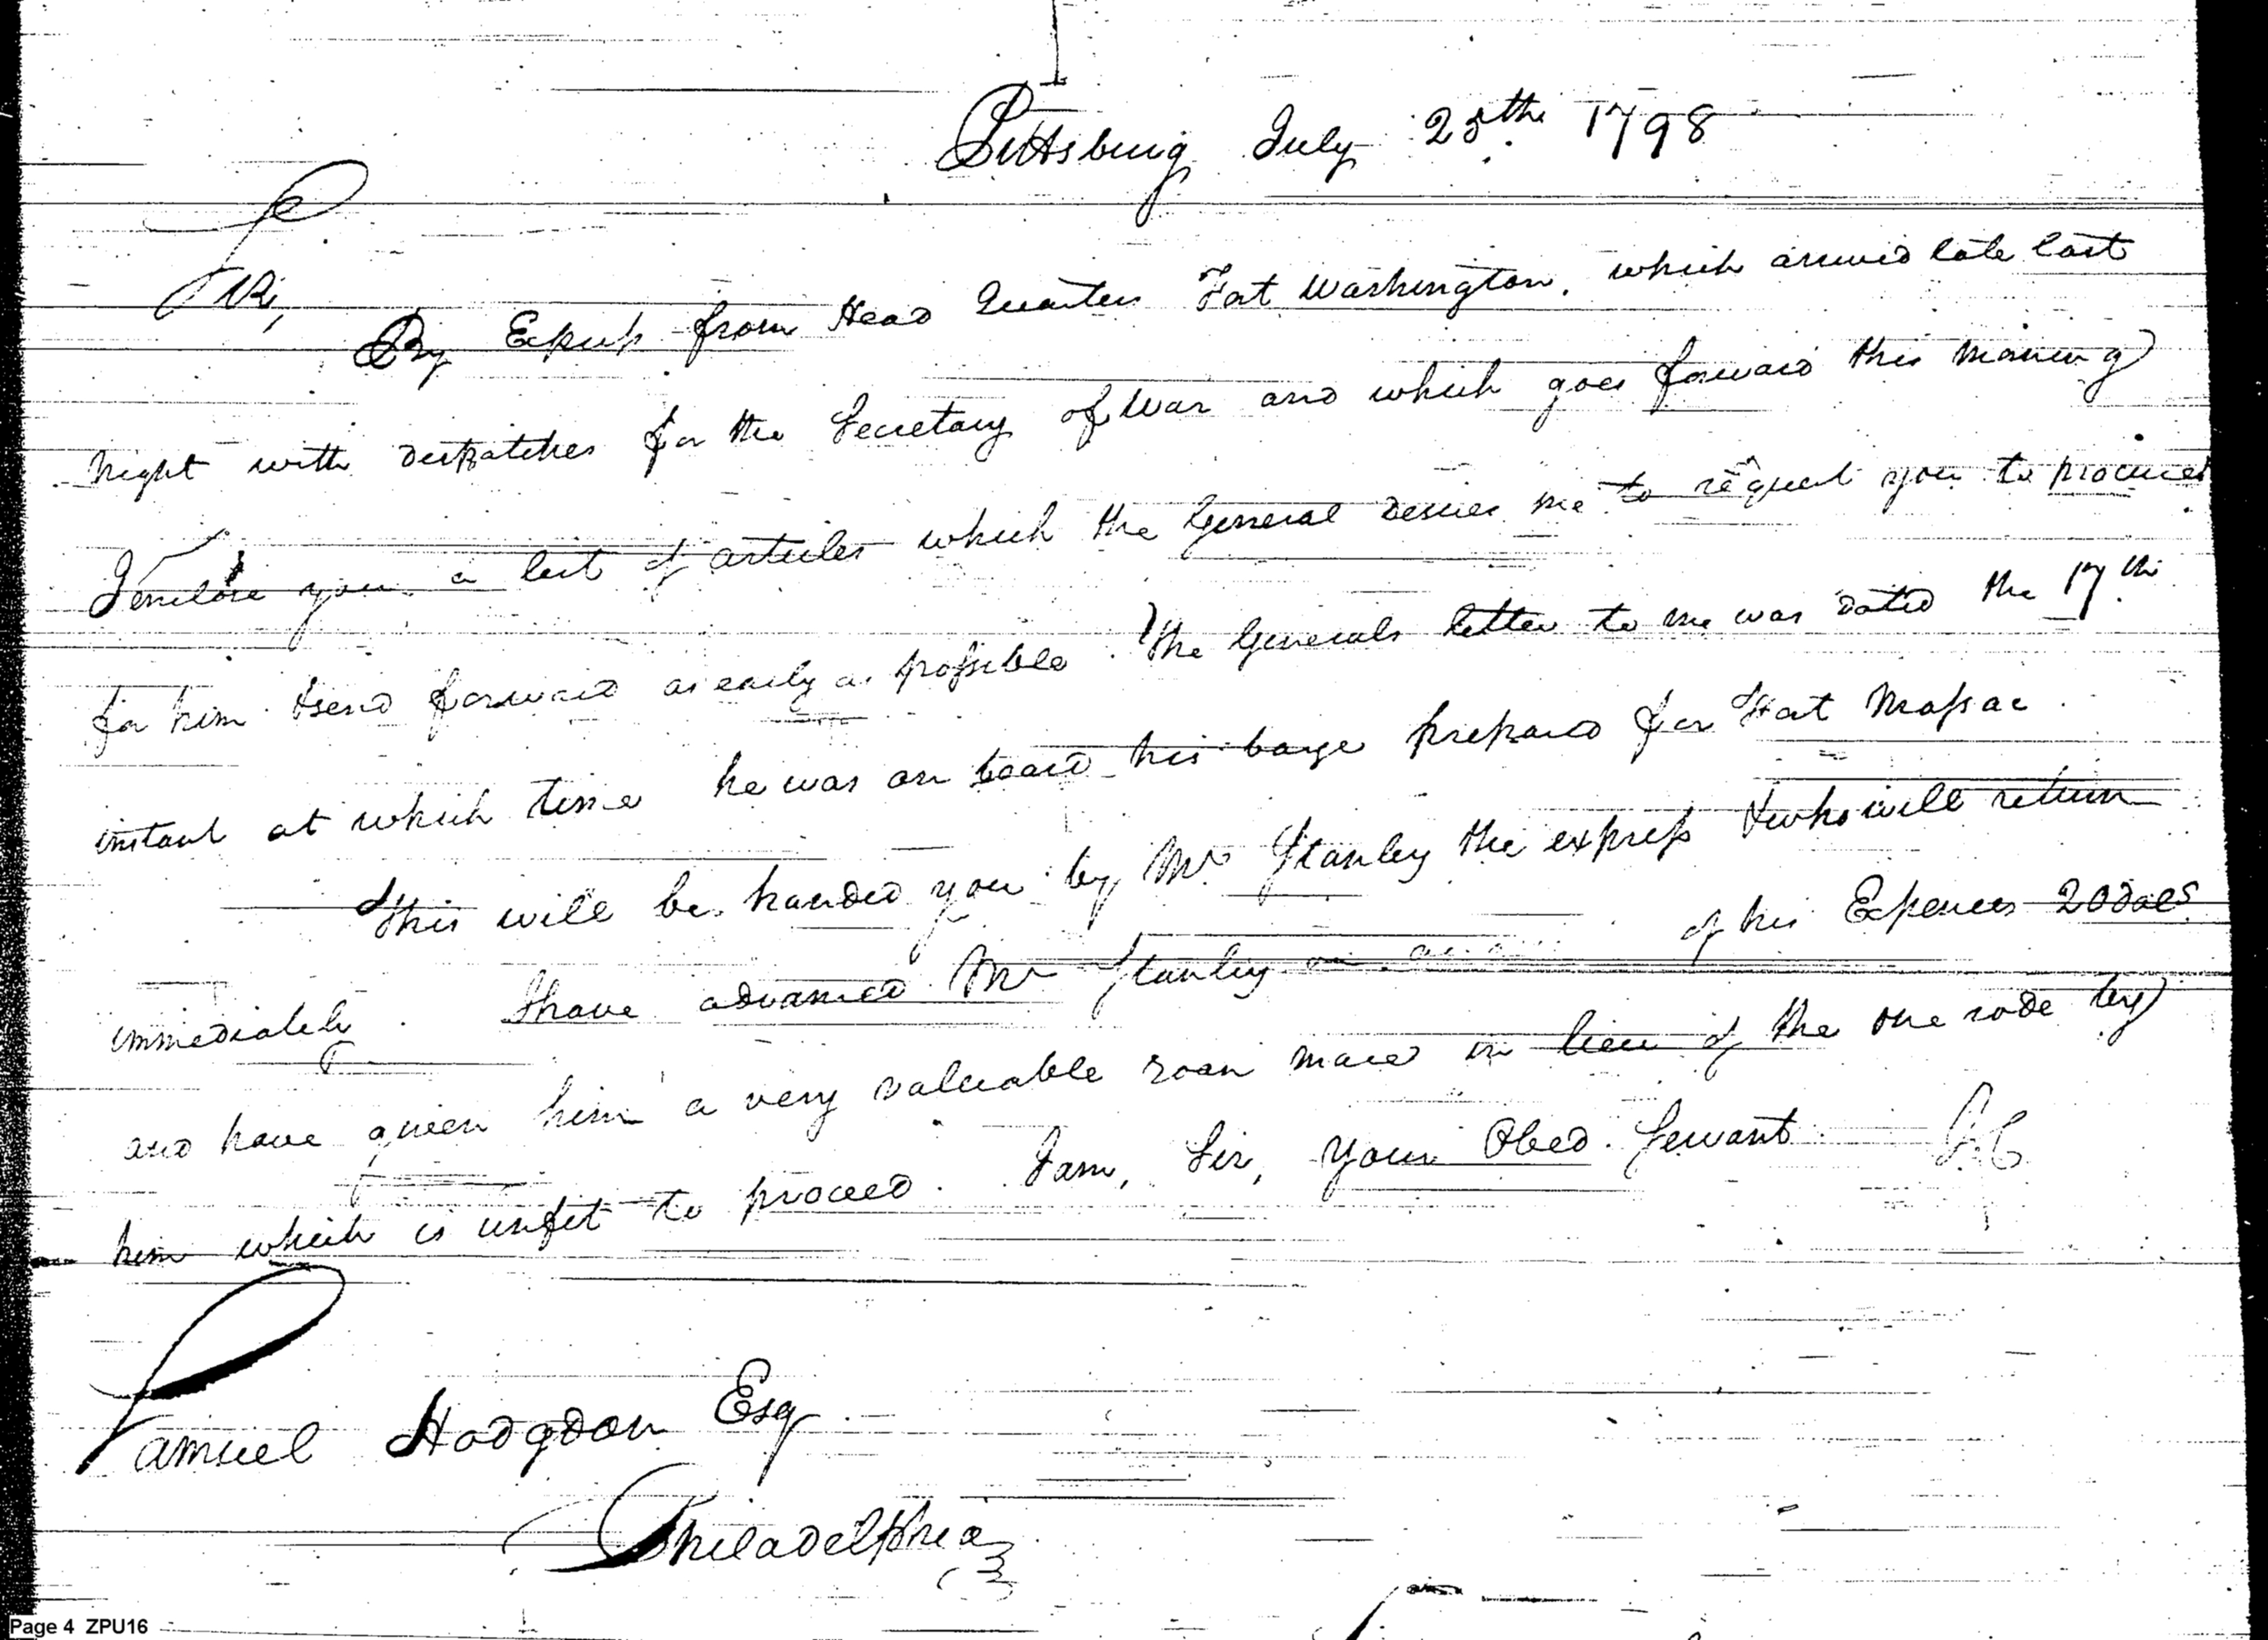 Pittsburg July 25th 1798
Sir,
By Express from Head Quarters Fort Washington, which arrived late last
night with despatches for the Secretary of War and which goes forward this morning
I enclose you a list of articles which the General desires me to request you to procure
for him & send forward as early as possible. The Generals letter to me was dated the 17th
instant at which time he was on board his barge prepared for Fort Massac.
This will be handed you by Mr Stanley the express & who will return
immediately. I have advanced Mr Stanley on of his Expences 20 dols
and have given him a very valuable roan mare in lieu of the one rode by
him which is unfit to proceed. I am, Sir, your Obed. Servant
Samuel Hodgdon Esq
Philadelphia
Page 4 ZPU16